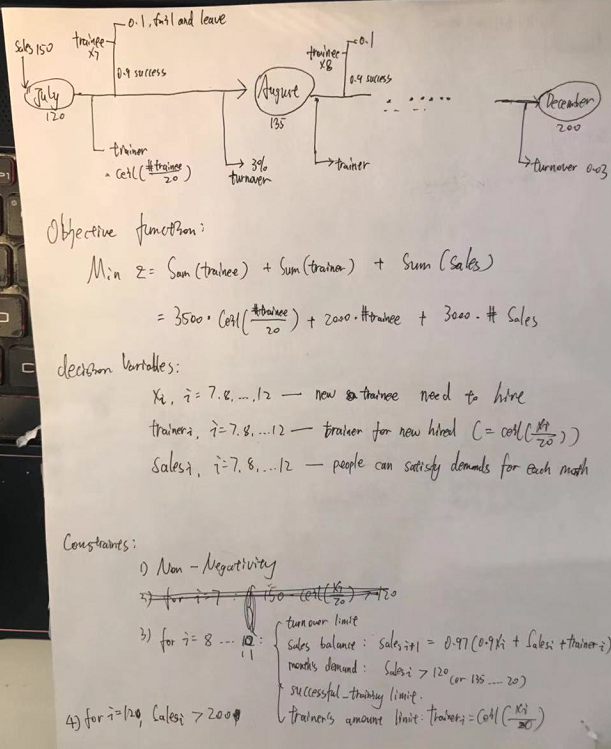 0.1, fail and leave
trainee
x7
Sales 150
0.9 success
July
120
trainer
= ceil(#trainee/20)
3%
turnover
August
135
trainee
x8
0.1
0.9 success
trainer
December
200
turnover 0.03
Objective function:
Min z = Sum(trainee) + Sum(trainer) + Sum(Sales)
= 3500 · Ceil(#trainee/20) + 2000 · #trainee + 3000 · # Sales
decision variables:
Xi, i=7.8,...,12 — new trainee need to hire
traineri, i=7.8,...12 — trainer for new hired (= ceil(Xi/20))
Salesi, i=7,8,...12 — people can satisfy demands for each month
Constraints:
1) Non-Negativity
2) for i=7 : 150 - ceil(Xi/20) > 120
3) for i= 8 ... 11 :
turnover limit
sales balance: salesi+1 = 0.97(0.9Xi + Salesi + traineri)
month's demand: Salesi > 120 (or 135 .... 20)
successful_training limit.
trainer's amount limit: traineri = Ceil(Xi/20)
4) for i=12, Salesi > 200